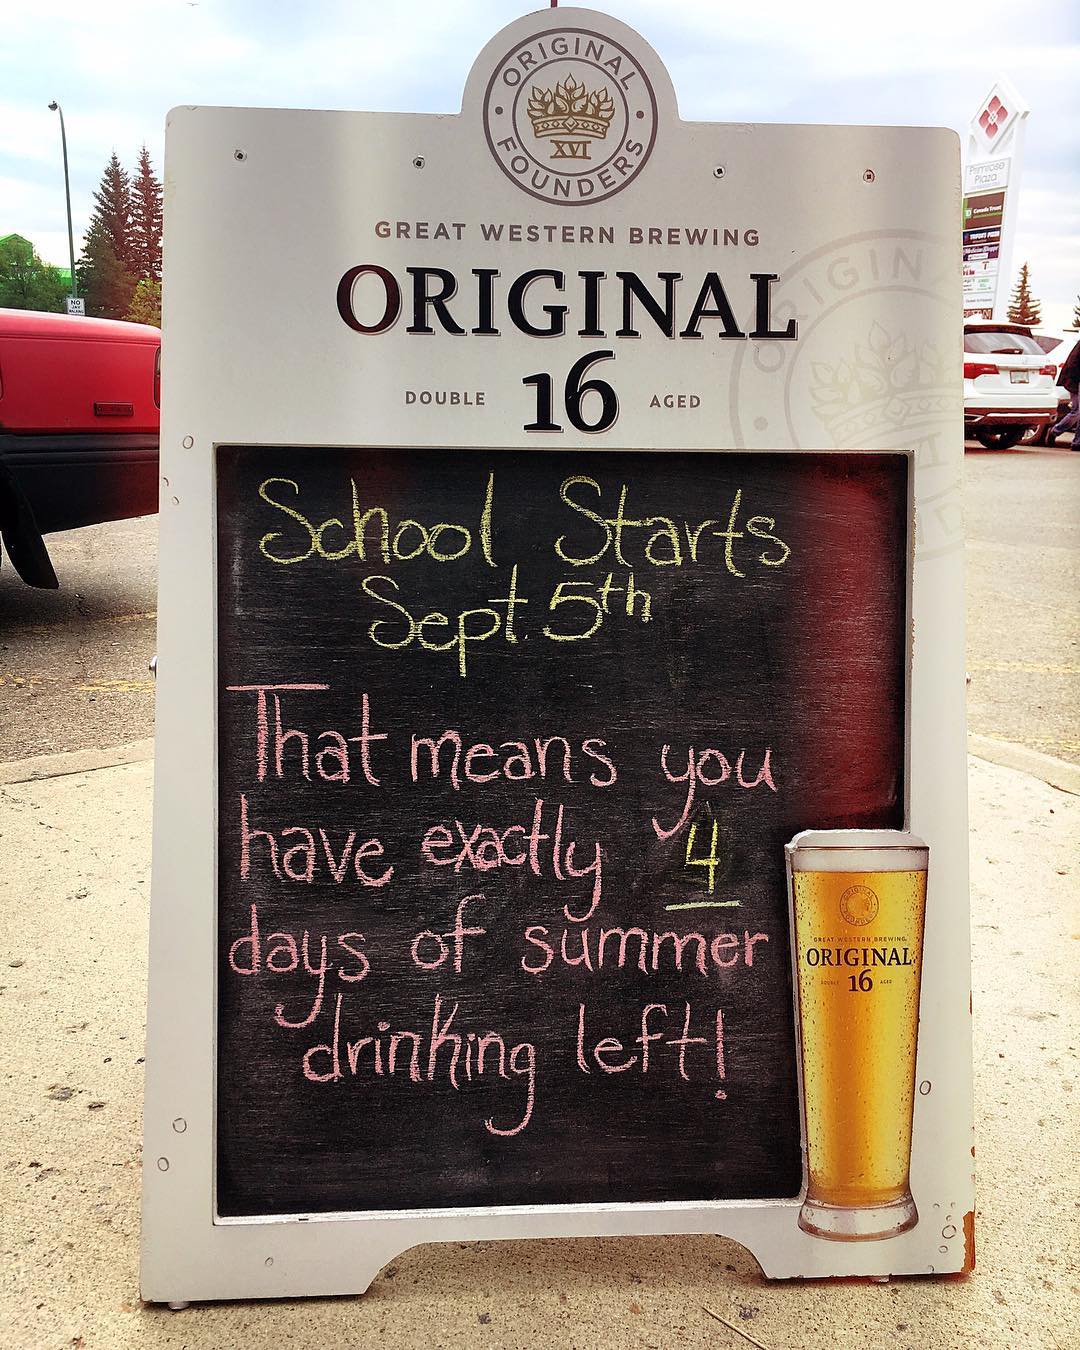 ORIGINAL
XVI
FOUNDERS
GREAT WESTERN BREWING
ORIGINAL
DOUBLE 16 AGED
School Starts
Sept. 5th
That means you
have exactly 4
days of summer
drinking left!
GREAT WESTERN BREWING
ORIGINAL
16
ORIGIN
NO
JAY
WALKING
Primrose
Plaza
Canada Trust